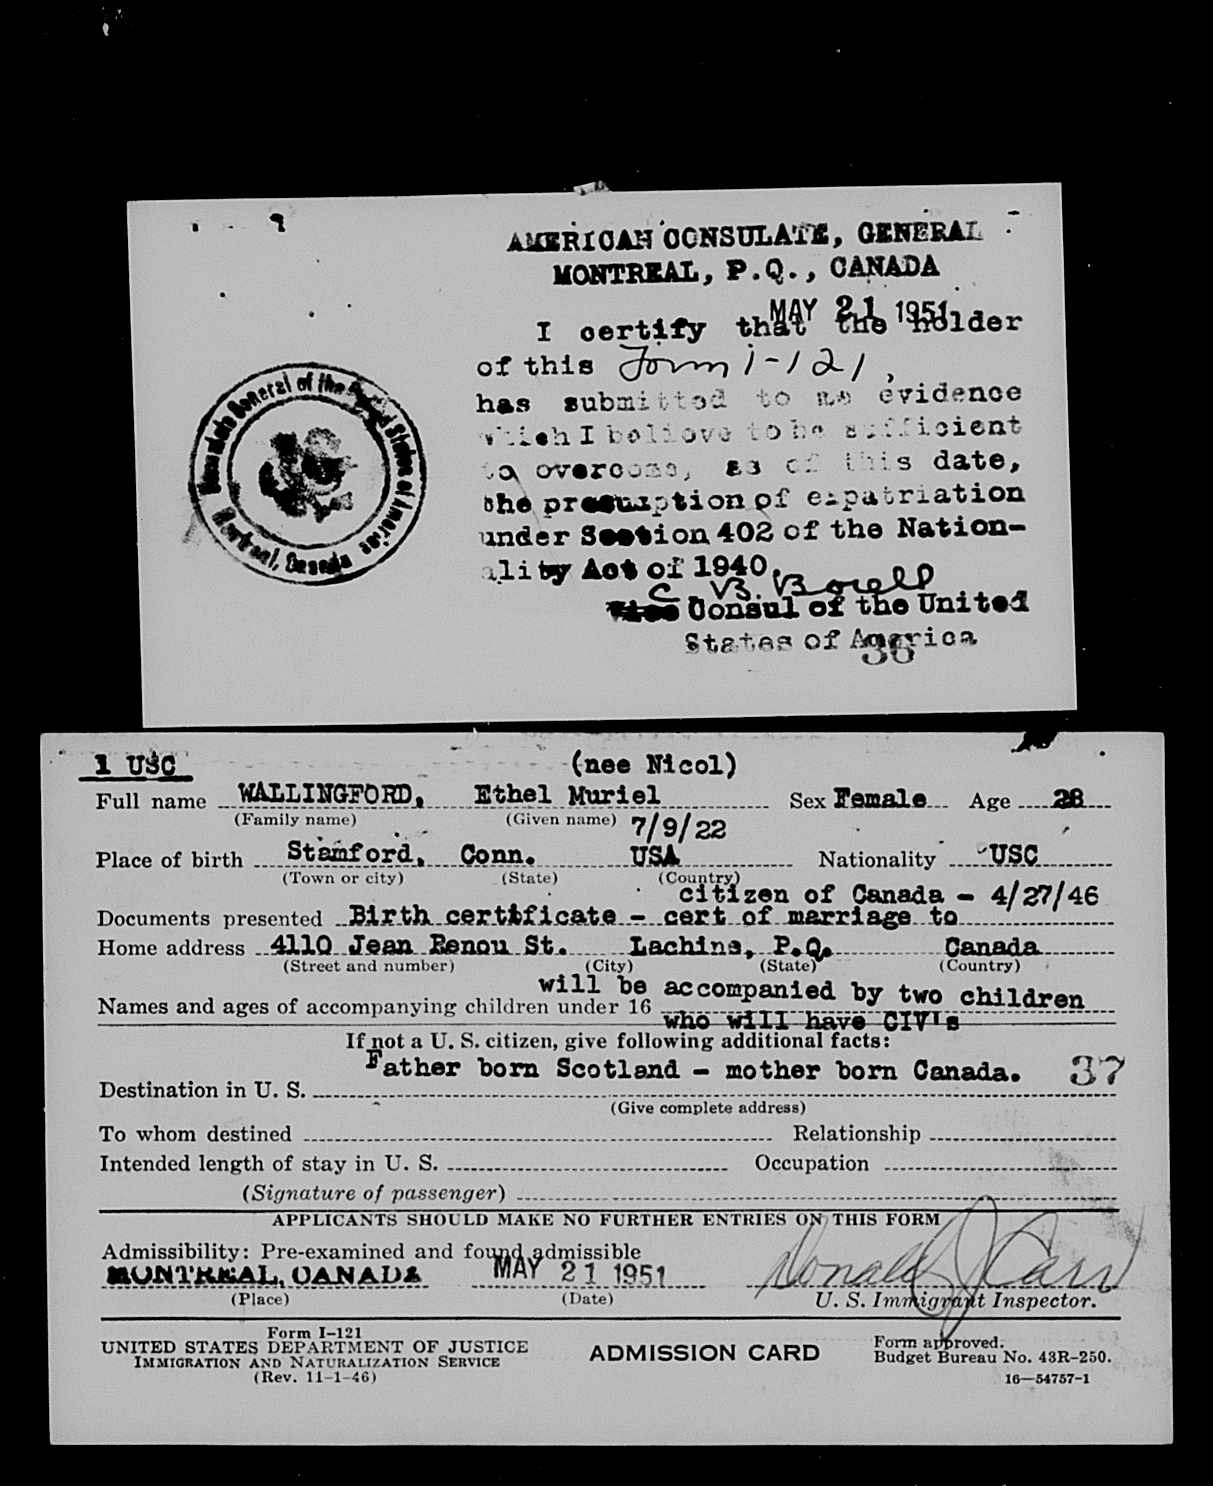 AMERICAN CONSULATE, GENERAL
MONTREAL, P.Q., CANADA
MAY 21 1951
I certify that the holder
of this Form i-121,
has submitted to me evidence
which I believe to be sufficient
to overcome, as of this date,
the presumption of expatriation
under Section 402 of the Nation-
ality Act of 1940.
Vice Consul of the United
States of America
36
Consulate General of the United States of America
Montreal, Canada
1 USC
(nee Nicol)
Full name WALLINGFORD, Ethel Muriel Sex Female Age 28
(Family name) (Given name) 7/9/22
Place of birth Stamford, Conn. USA Nationality USC
(Town or city) (State) (Country)
citizen of Canada - 4/27/46
Documents presented Birth certificate - cert of marriage to
Home address 4110 Jean Renou St. Lachine, P.Q. Canada
(Street and number) (City) (State) (Country)
will be accompanied by two children
Names and ages of accompanying children under 16
who will have CIV's
If not a U. S. citizen, give following additional facts:
Father born Scotland - mother born Canada. 37
Destination in U. S.
(Give complete address)
To whom destined Relationship
Intended length of stay in U. S. Occupation
(Signature of passenger)
APPLICANTS SHOULD MAKE NO FURTHER ENTRIES ON THIS FORM
Admissibility: Pre-examined and found admissible
MONTREAL, CANADA MAY 21 1951 Donald J Carr
(Place) (Date) U. S. Immigrant Inspector.
Form I-121
UNITED STATES DEPARTMENT OF JUSTICE
IMMIGRATION AND NATURALIZATION SERVICE
(Rev. 11-1-46)
ADMISSION CARD
Form approved.
Budget Bureau No. 43R-250.
16—54757-1